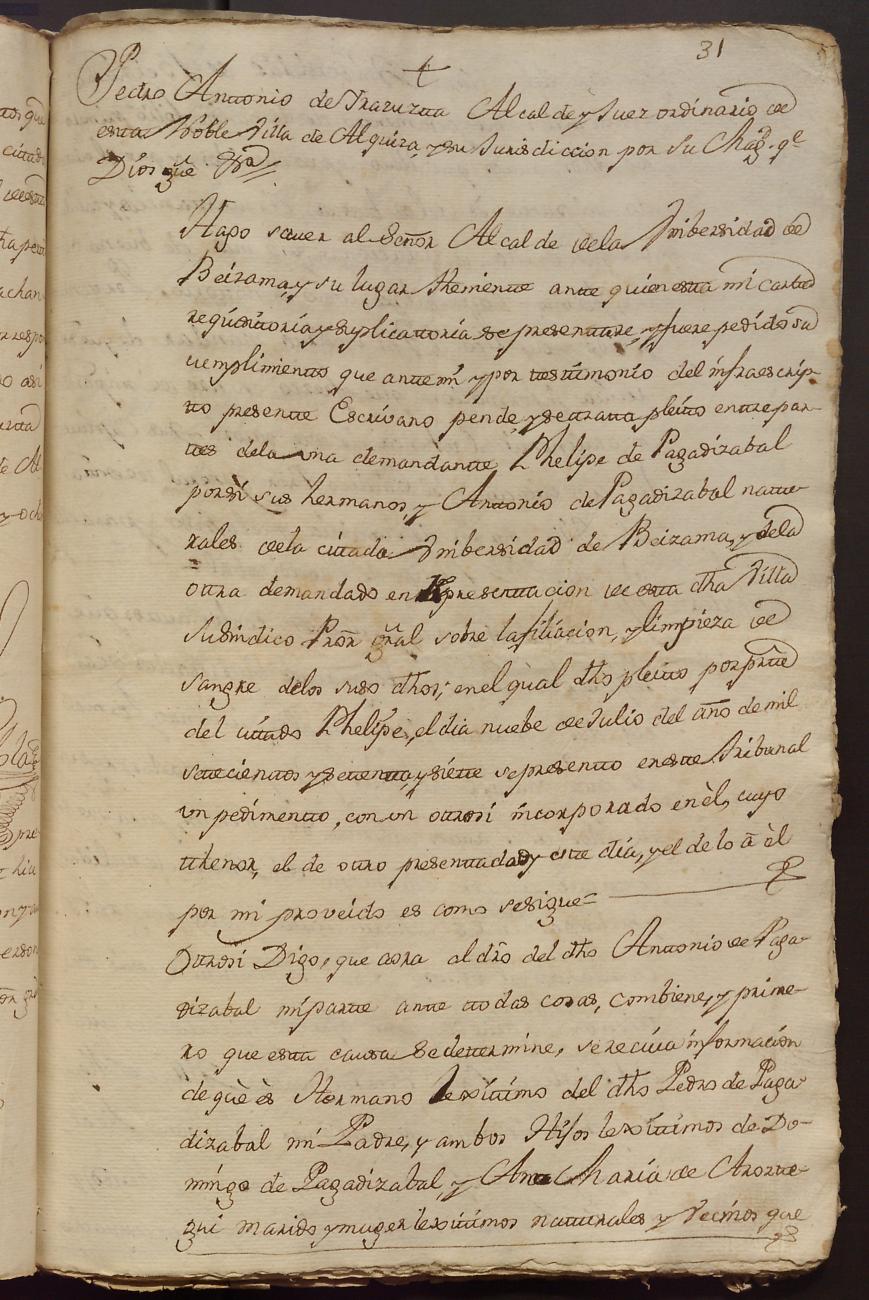 31
+
Pedro Antonio de Yrazuzta Alcalde y Juez ordinario de
esta Noble Villa de Alquiza, y su Jurisdiccion por su Mag.d q.e
Dios gũe &ra
Hago saver al Señor Alcalde de la Vnibersidad de
Beizama, y su lugar theniente ante quien esta mi carta
requisitoria y suplicatoria se presentare, y fuere pedido su
cumplimiento que ante mi y por testimonio del infraescrip-
to presente Escrivano pende, y se trata pleito entre par-
tes de la una demandante Phelipe de Pagadizabal
por si sus hermanos, y Antonio de Pagadizabal natu-
rales de la citada Vnibersidad de Beizama, y dela
otra demandado en Representacion de esta dha Villa
su Sindico Pror gral sobre la filiacion, y limpieza de
sangre delos suso dhos; en el qual dho pleito por prte
del citado Phelipe, el dia nuebe de Julio del año de mil
setecientos y setenta, y siette se presento en este Tribunal
un pedimento, con un otrosi incorporado en èl, cuyo
thenor, el de otro presentado oy este dia, y el de lo a èl
por mi proveido es como se sigue=
Otrosi Digo, que aora al dro del dho Antonio de Paga-
dizabal mi parte ante todas cosas, combiene, y prime-
ro que esta causa se determine, se reciva informacion
de què es Hermano lexitimo del dho Pedro de Paga-
dizabal mi Padre, y ambos Hijos lexitimos de Do-
mingo de Pagadizabal y Ana Maria de Arorte-
gui marido y muger lexitimos naturales y Vecinos que